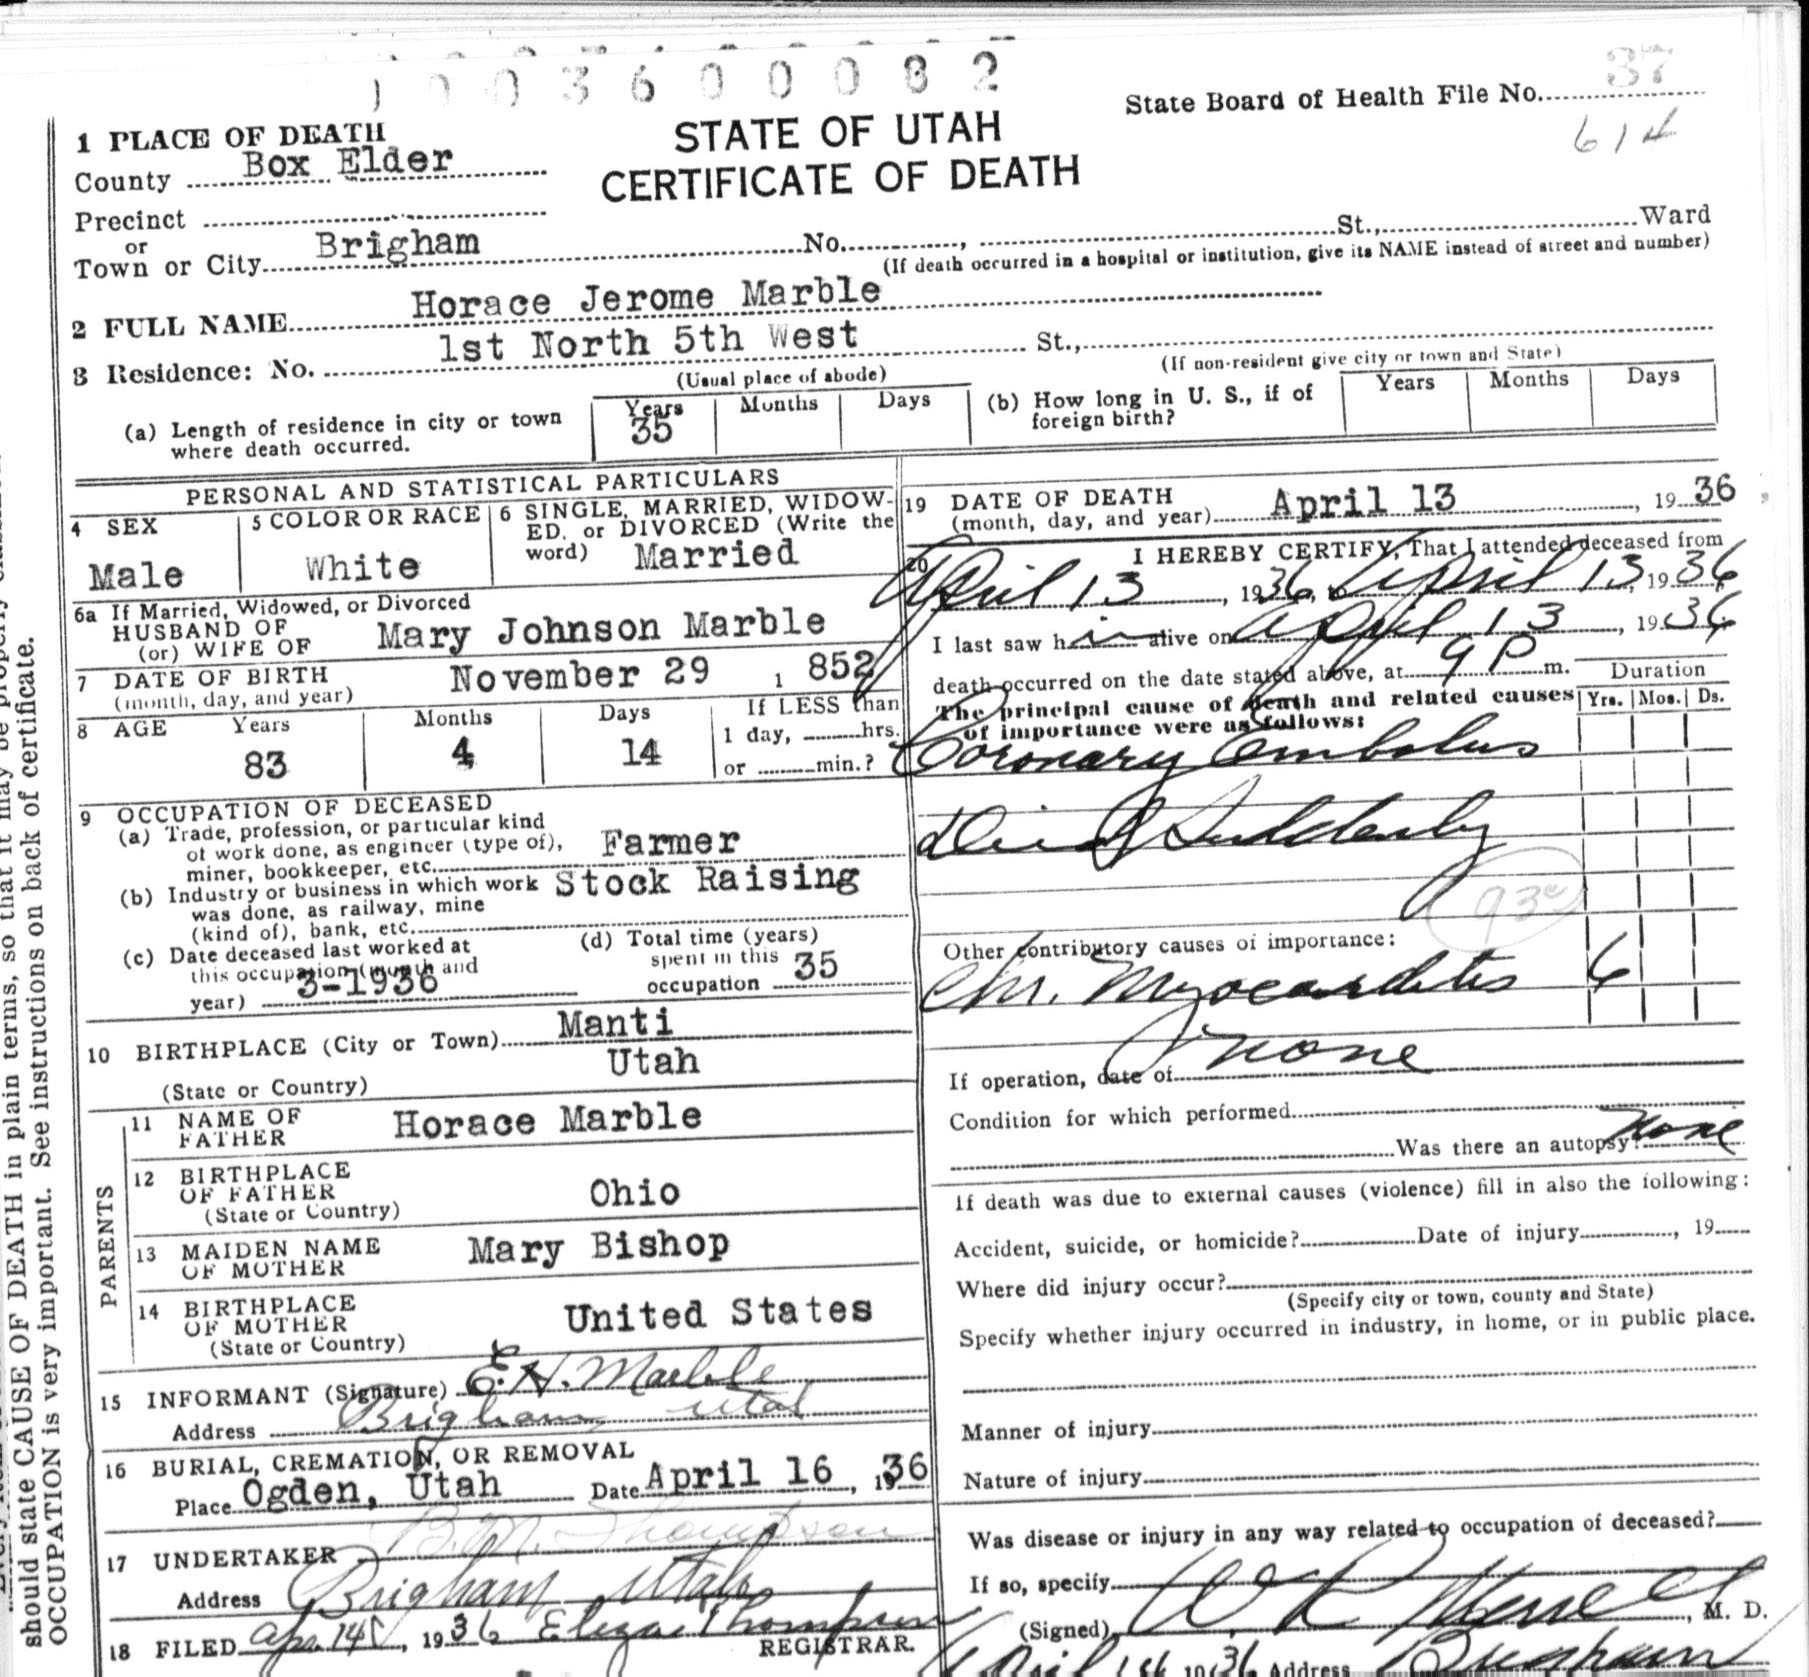 1003600082
37
State Board of Health File No.
614
STATE OF UTAH
CERTIFICATE OF DEATH
1 PLACE OF DEATH
County Box Elder
Precinct
or
Town or City Brigham No. , St., Ward
(If death occurred in a hospital or institution, give its NAME instead of street and number)
2 FULL NAME Horace Jerome Marble
3 Residence: No. 1st North 5th West St.,
(Usual place of abode) (If non-resident give city or town and State)
(a) Length of residence in city or town where death occurred. Years 35 Months Days
(b) How long in U. S., if of foreign birth? Years Months Days
PERSONAL AND STATISTICAL PARTICULARS
4 SEX Male
5 COLOR OR RACE White
6 SINGLE, MARRIED, WIDOW-
ED, or DIVORCED (Write the
word) Married
6a If Married, Widowed, or Divorced
HUSBAND OF
(or) WIFE OF Mary Johnson Marble
7 DATE OF BIRTH
(month, day, and year) November 29 1 852
8 AGE Years 83 Months 4 Days 14
If LESS than
1 day, hrs.
or min.?
9 OCCUPATION OF DECEASED
(a) Trade, profession, or particular kind
of work done, as engineer (type of),
miner, bookkeeper, etc. Farmer
(b) Industry or business in which work
was done, as railway, mine
(kind of), bank, etc. Stock Raising
(c) Date deceased last worked at
this occupation (month and
year) 3-1936
(d) Total time (years)
spent in this
occupation 35
10 BIRTHPLACE (City or Town) Manti
(State or Country) Utah
PARENTS
11 NAME OF
FATHER Horace Marble
12 BIRTHPLACE
OF FATHER
(State or Country) Ohio
13 MAIDEN NAME
OF MOTHER Mary Bishop
14 BIRTHPLACE
OF MOTHER
(State or Country) United States
15 INFORMANT (Signature) E. H. Marble
Address Brigham Utah
16 BURIAL, CREMATION, OR REMOVAL
Place Ogden, Utah Date April 16, 1936
17 UNDERTAKER B. M. Thompson
Address Brigham Utah
18 FILED Apr. 14, 1936 Eliza Thompson
REGISTRAR.
19 DATE OF DEATH
(month, day, and year) April 13, 1936
20 I HEREBY CERTIFY, That I attended deceased from
April 13, 1936, to April 13, 1936
I last saw him alive on April 13, 1936
death occurred on the date stated above, at 9 P m. Duration
The principal cause of death and related causes Yrs. Mos. Ds.
of importance were as follows:
Coronary Embolus
died Suddenly
93c
Other contributory causes of importance:
Chr. Myocarditis 6
If operation, date of none
Condition for which performed
Was there an autopsy? None
If death was due to external causes (violence) fill in also the following:
Accident, suicide, or homicide? Date of injury , 19
Where did injury occur?
(Specify city or town, county and State)
Specify whether injury occurred in industry, in home, or in public place.
Manner of injury
Nature of injury
Was disease or injury in any way related to occupation of deceased?
If so, specify
(Signed) W R , M. D.
April 1936 Address Brigham
should state CAUSE OF DEATH in plain terms, so that it may be properly
OCCUPATION is very important. See instructions on back of certificate.